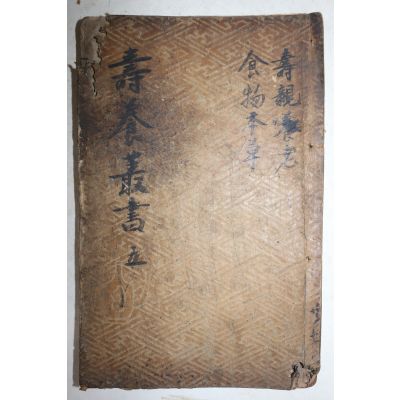 壽親養老
食物本草
壽養叢書 五